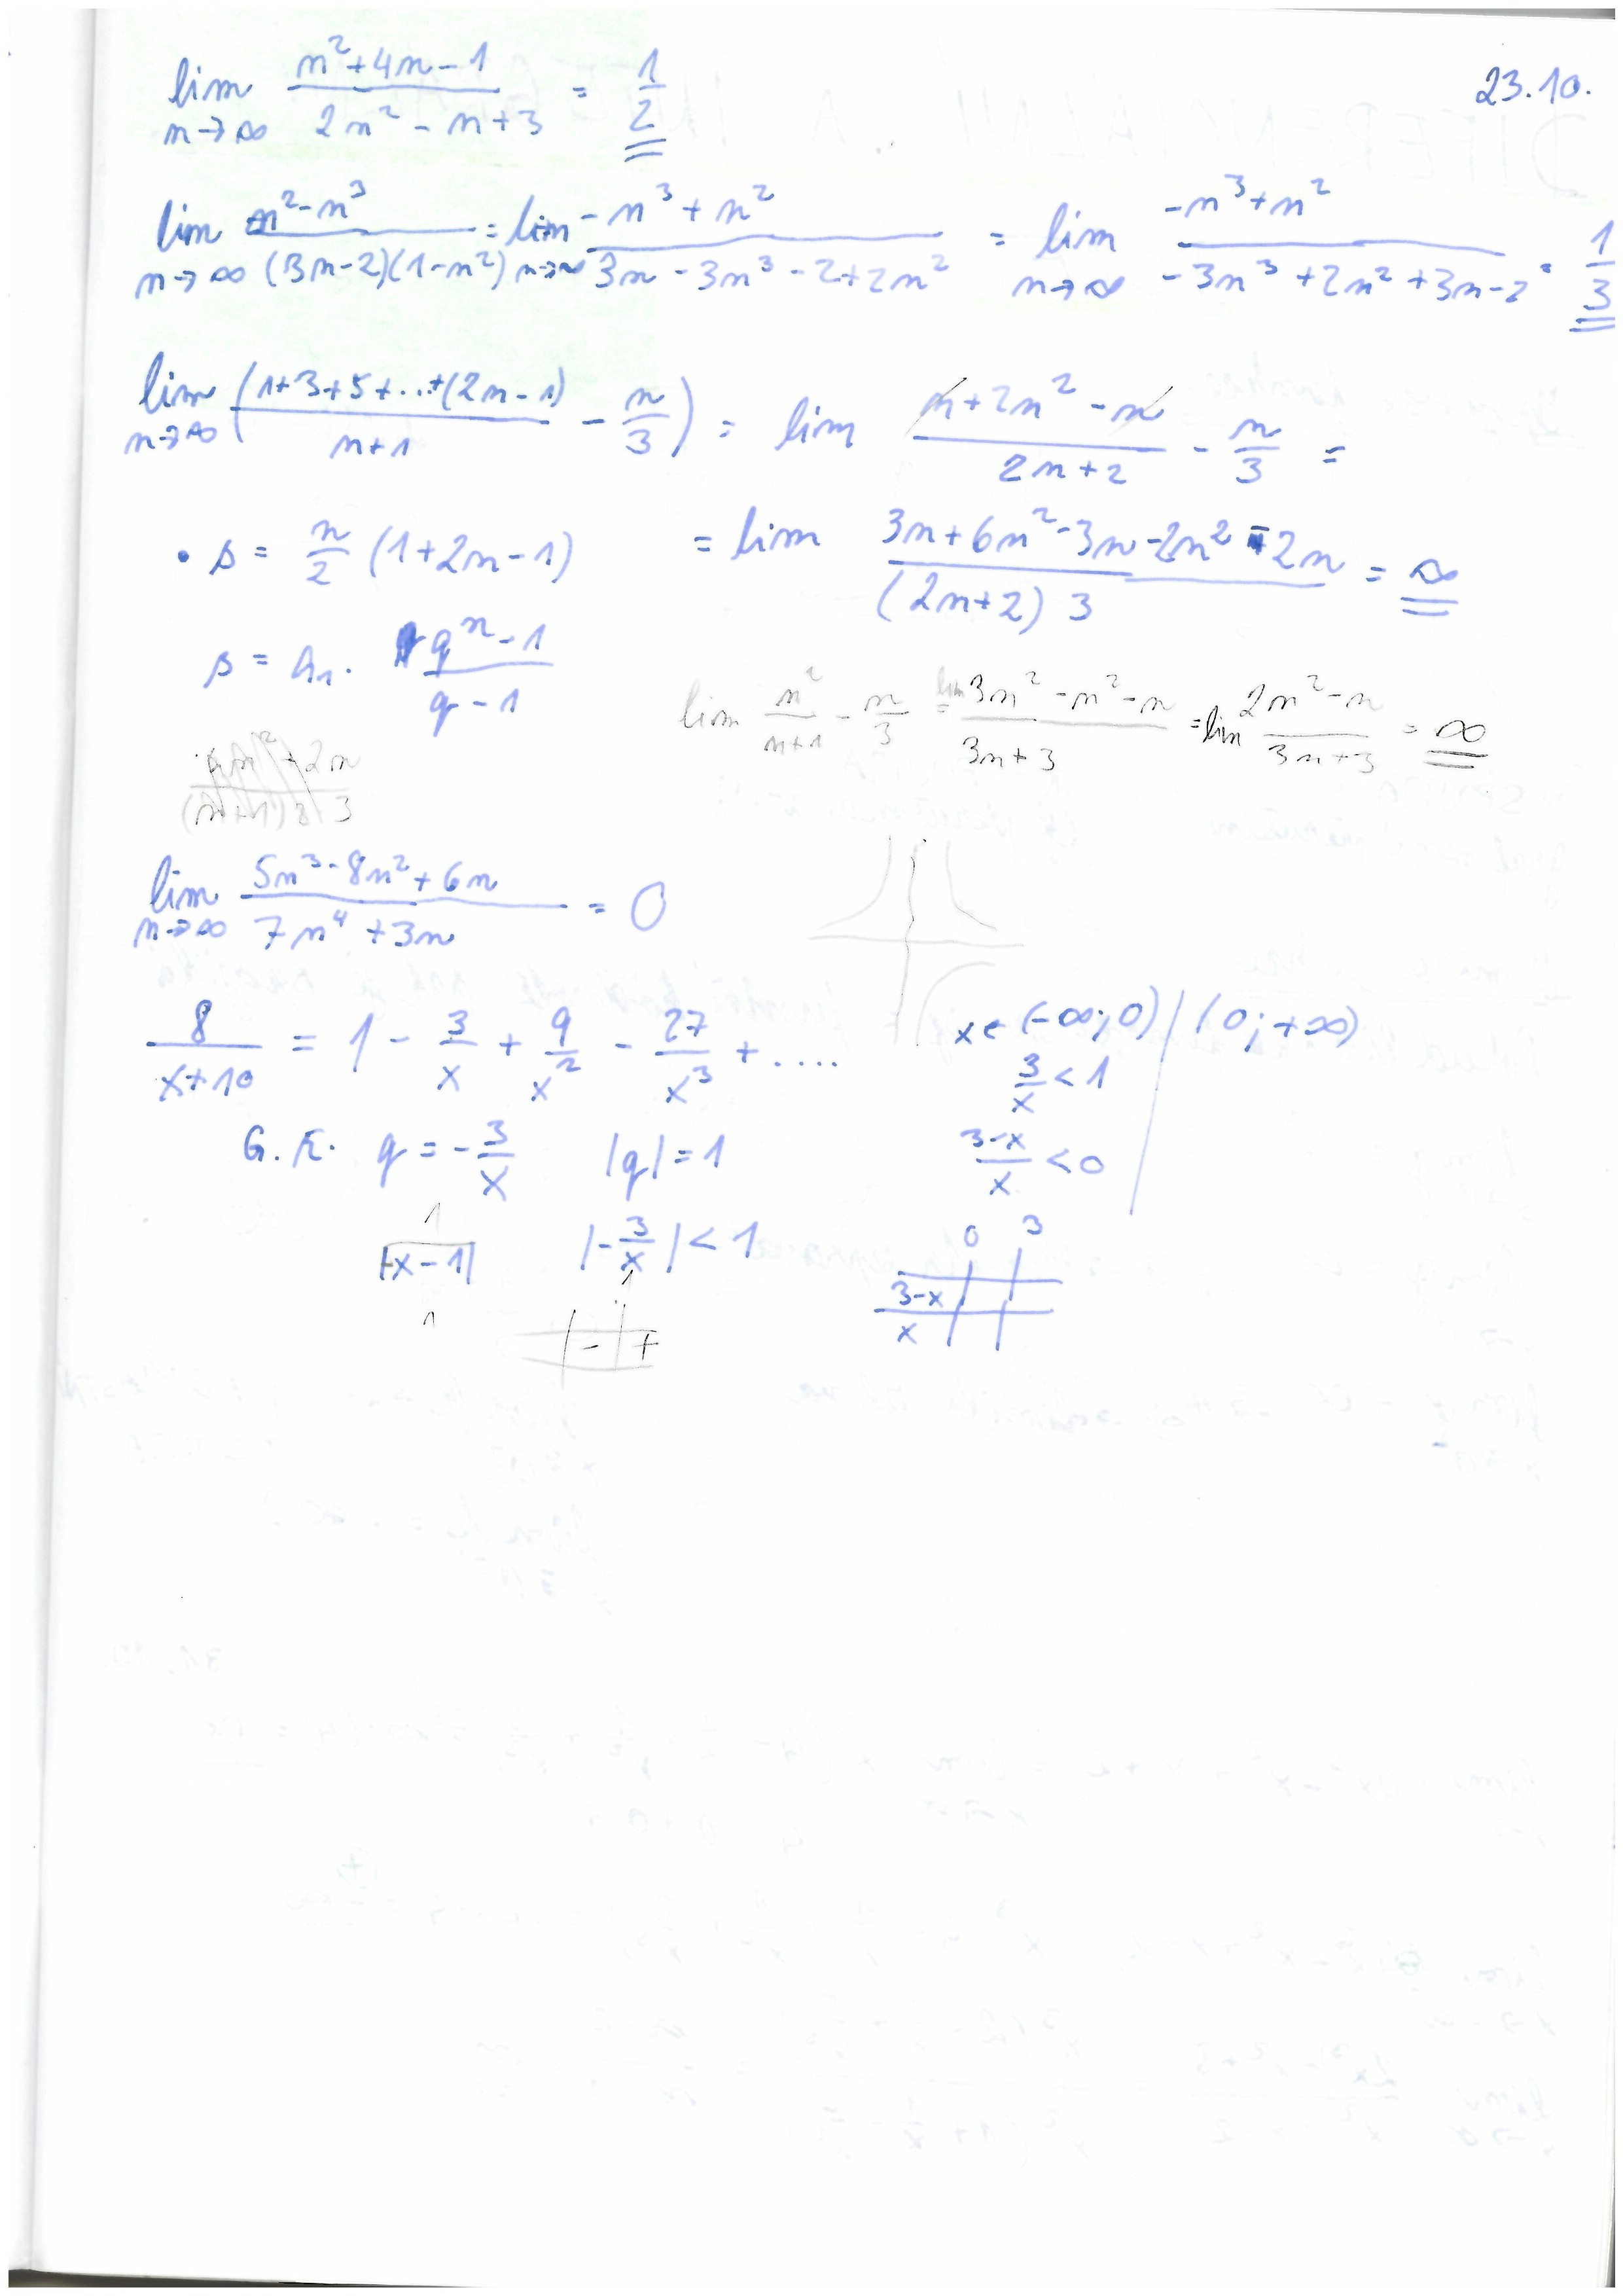 23.10.
lim n→∞ (n²+4n-1)/(2n²-n+3) = 1/2
lim n→∞ (n²-n³)/((3n-2)(1-n²)) = lim n→∞ (-n³+n²)/(3n-3n³-2+2n²) = lim n→∞ (-n³+n²)/(-3n³+2n²+3n-2) = 1/3
lim n→∞ ((1+3+5+...+(2n-1))/(n+1) - n/3) = lim (n+2n²-n)/(2n+2) - n/3 =
• s = n/2 (1+2n-1)
= lim (3n+6n²-3n-2n²-2n)/((2n+2)3) = ∞
s = a₁. (qⁿ-1)/(q-1)
lim n²/(n+1) - n/3 = lim (3n²-n²-n)/(3n+3) = lim (2n²-n)/(3n+3) = ∞
lim n→∞ (5n³-8n²+6n)/(7n⁴+3n) = 0
8/(x+10) = 1 - 3/x + 9/x² - 27/x³ + ....
x ∈ (-∞;0) | (0;+∞)
3/x < 1
G.Ř. q = -3/x |q| = 1
(3-x)/x < 0
|x-1| |-3/x| < 1
0 3
3-x
x
- +